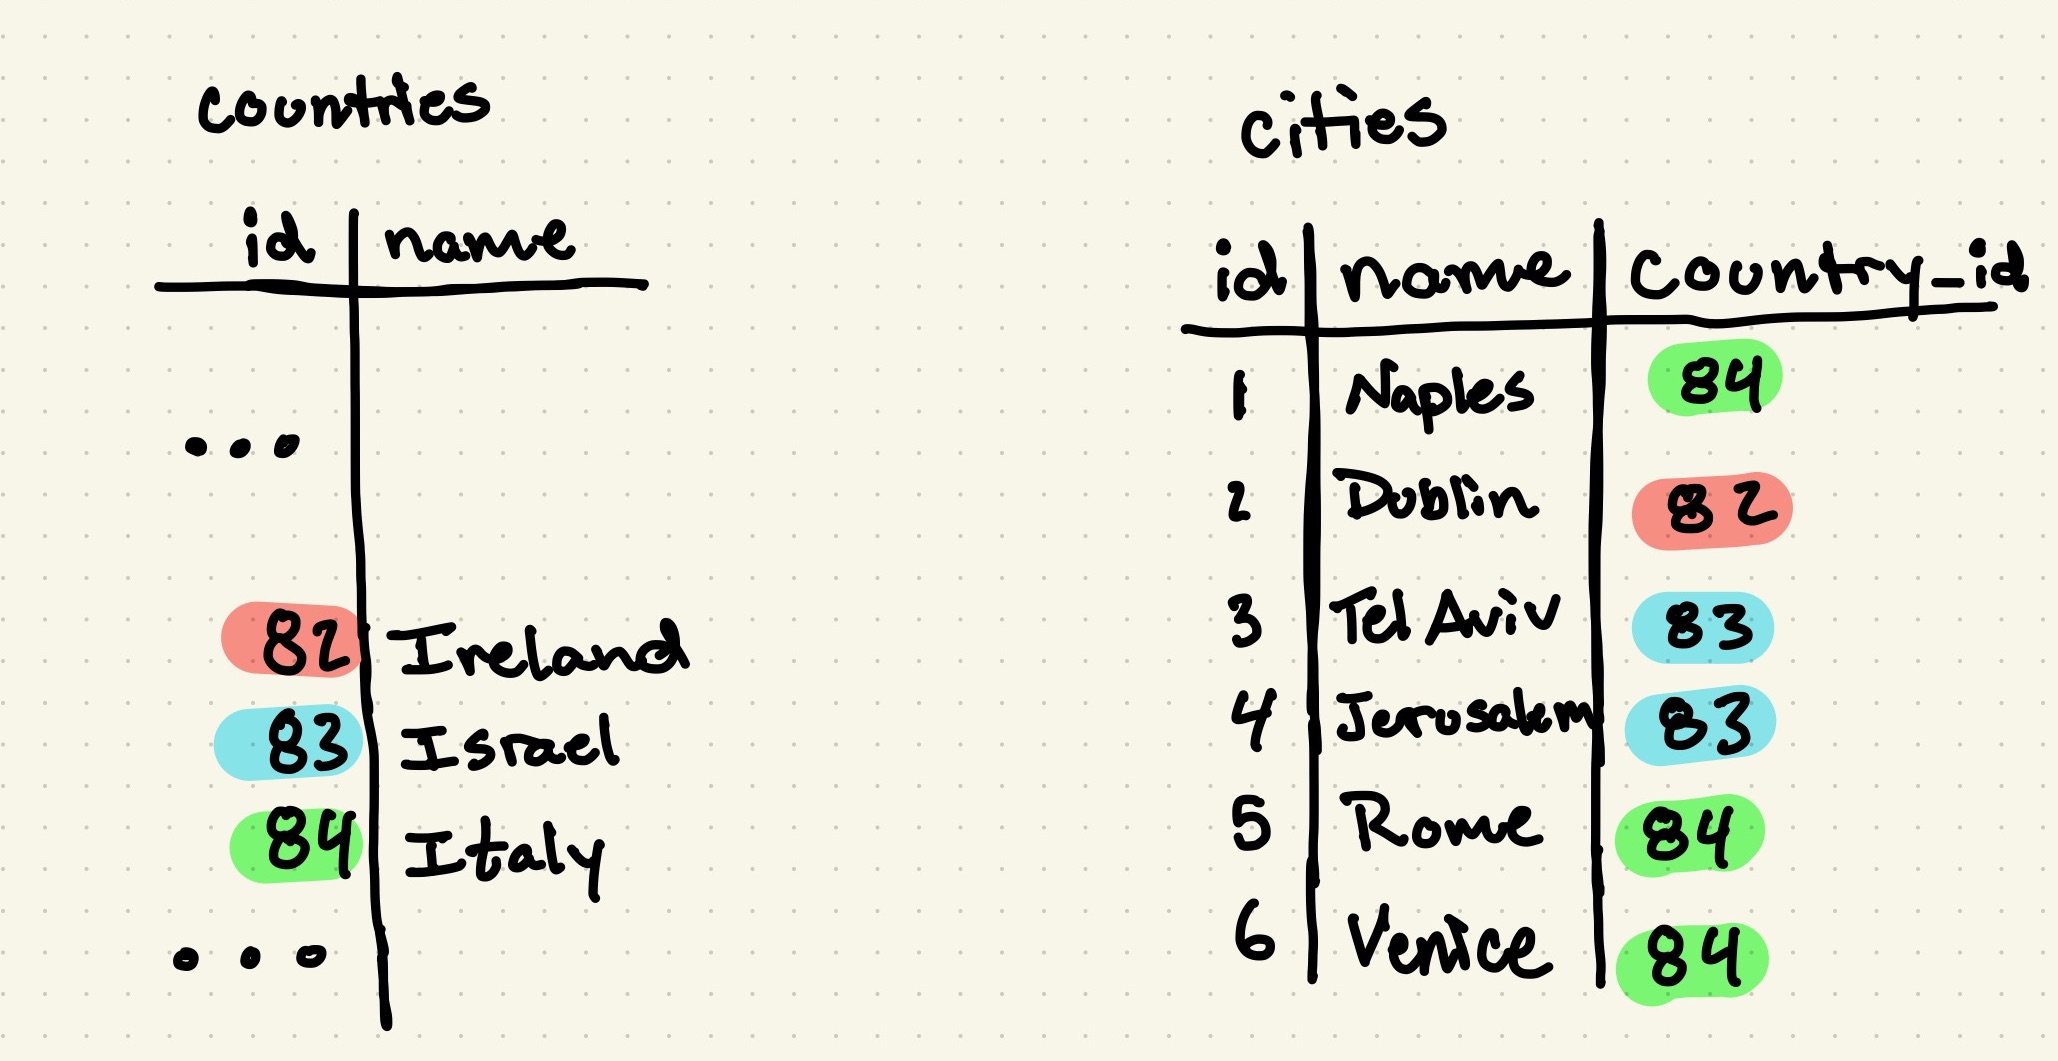 countries
id name
...
82 Ireland
83 Israel
84 Italy
...
cities
id name country_id
1 Naples 84
2 Dublin 82
3 Tel Aviv 83
4 Jerusalem 83
5 Rome 84
6 Venice 84